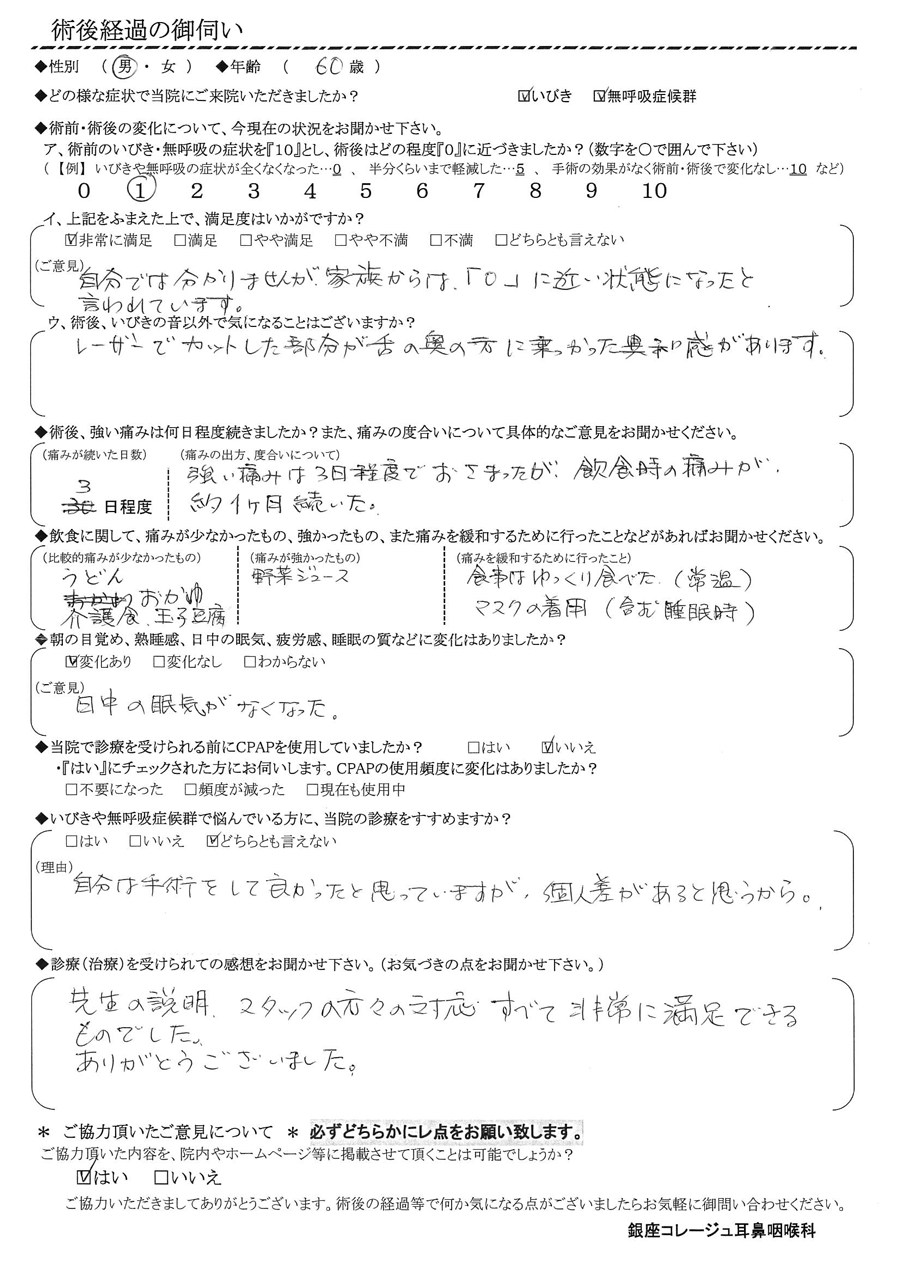 術後経過の御伺い
◆性別 （ 男 ・ 女 ） ◆年齢 （ 60 歳 ）
◆どの様な症状で当院にご来院いただきましたか？ ☑いびき ☑無呼吸症候群
◆術前・術後の変化について、今現在の状況をお聞かせ下さい。
ア、術前のいびき・無呼吸の症状を『10』とし、術後はどの程度『0』に近づきましたか？（数字を○で囲んで下さい）
（ 【例】 いびきや無呼吸の症状が全くなくなった…0 、 半分くらいまで軽減した…5 、 手術の効果がなく術前・術後で変化なし…10 など）
0 1 2 3 4 5 6 7 8 9 10
イ、上記をふまえた上で、満足度はいかがですか？
☑非常に満足 □満足 □やや満足 □やや不満 □不満 □どちらとも言えない
（ご意見）
自分では分かりませんが、家族からは、「0」に近い状態になったと
言われています。
ウ、術後、いびきの音以外で気になることはございますか？
レーザーでカットした部分が舌の奥の方に乗っかった異和感があります。
◆術後、強い痛みは何日程度続きましたか？また、痛みの度合いについて具体的なご意見をお聞かせください。
（痛みが続いた日数） （痛みの出方、度合いについて）
強い痛みは3日程度でおさまったが、飲食時の痛みが、
3 日程度 約1ヶ月続いた。
◆飲食に関して、痛みが少なかったもの、強かったもの、また痛みを緩和するために行ったことなどがあればお聞かせください。
（比較的痛みが少なかったもの） （痛みが強かったもの） （痛みを緩和するために行ったこと）
うどん 野菜ジュース 食事はゆっくり食べた（常温）
おかゆ マスクの着用（含む睡眠時）
介護食、玉子豆腐
◆朝の目覚め、熟睡感、日中の眠気、疲労感、睡眠の質などに変化はありましたか？
☑変化あり □変化なし □わからない
（ご意見）
日中の眠気がなくなった。
◆当院で診療を受けられる前にCPAPを使用していましたか？ □はい ☑いいえ
・『はい』にチェックされた方にお伺いします。CPAPの使用頻度に変化はありましたか？
□不要になった □頻度が減った □現在も使用中
◆いびきや無呼吸症候群で悩んでいる方に、当院の診療をすすめますか？
□はい □いいえ ☑どちらとも言えない
（理由）
自分は手術をして良かったと思っていますが、個人差があると思うから。
◆診療（治療）を受けられての感想をお聞かせ下さい。（お気づきの点をお聞かせ下さい。）
先生の説明、スタッフの方々の対応すべて非常に満足できる
ものでした。
ありがとうございました。
＊ ご協力頂いたご意見について ＊ 必ずどちらかにレ点をお願い致します。
ご協力頂いた内容を、院内やホームページ等に掲載させて頂くことは可能でしょうか？
☑はい □いいえ
ご協力いただきましてありがとうございます。術後の経過等で何か気になる点がございましたらお気軽に御問い合わせください。
銀座コレージュ耳鼻咽喉科